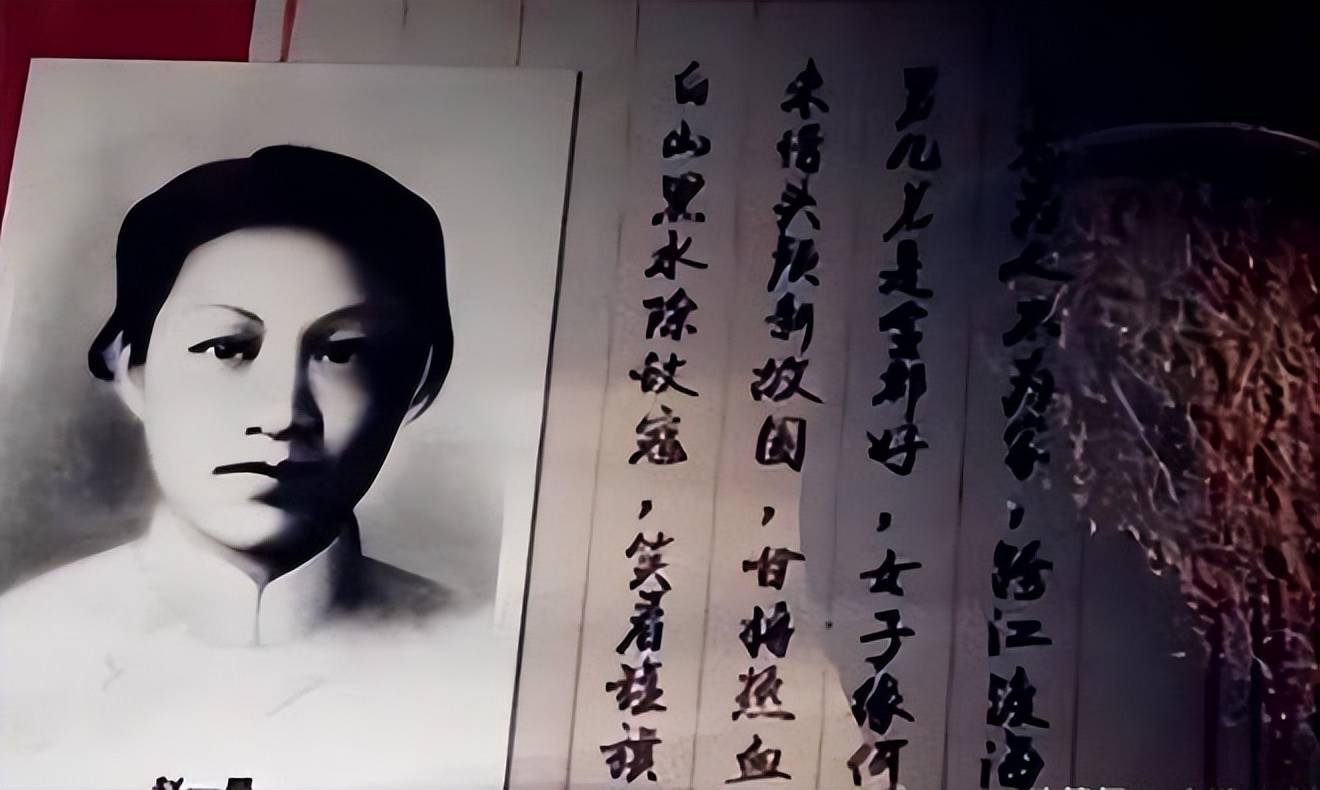 为人不为家，跨江渡海
男儿是全都好，女子缘何
未惜头颅新故国，甘将热血
白山黑水除敌寇，笑看旌旗